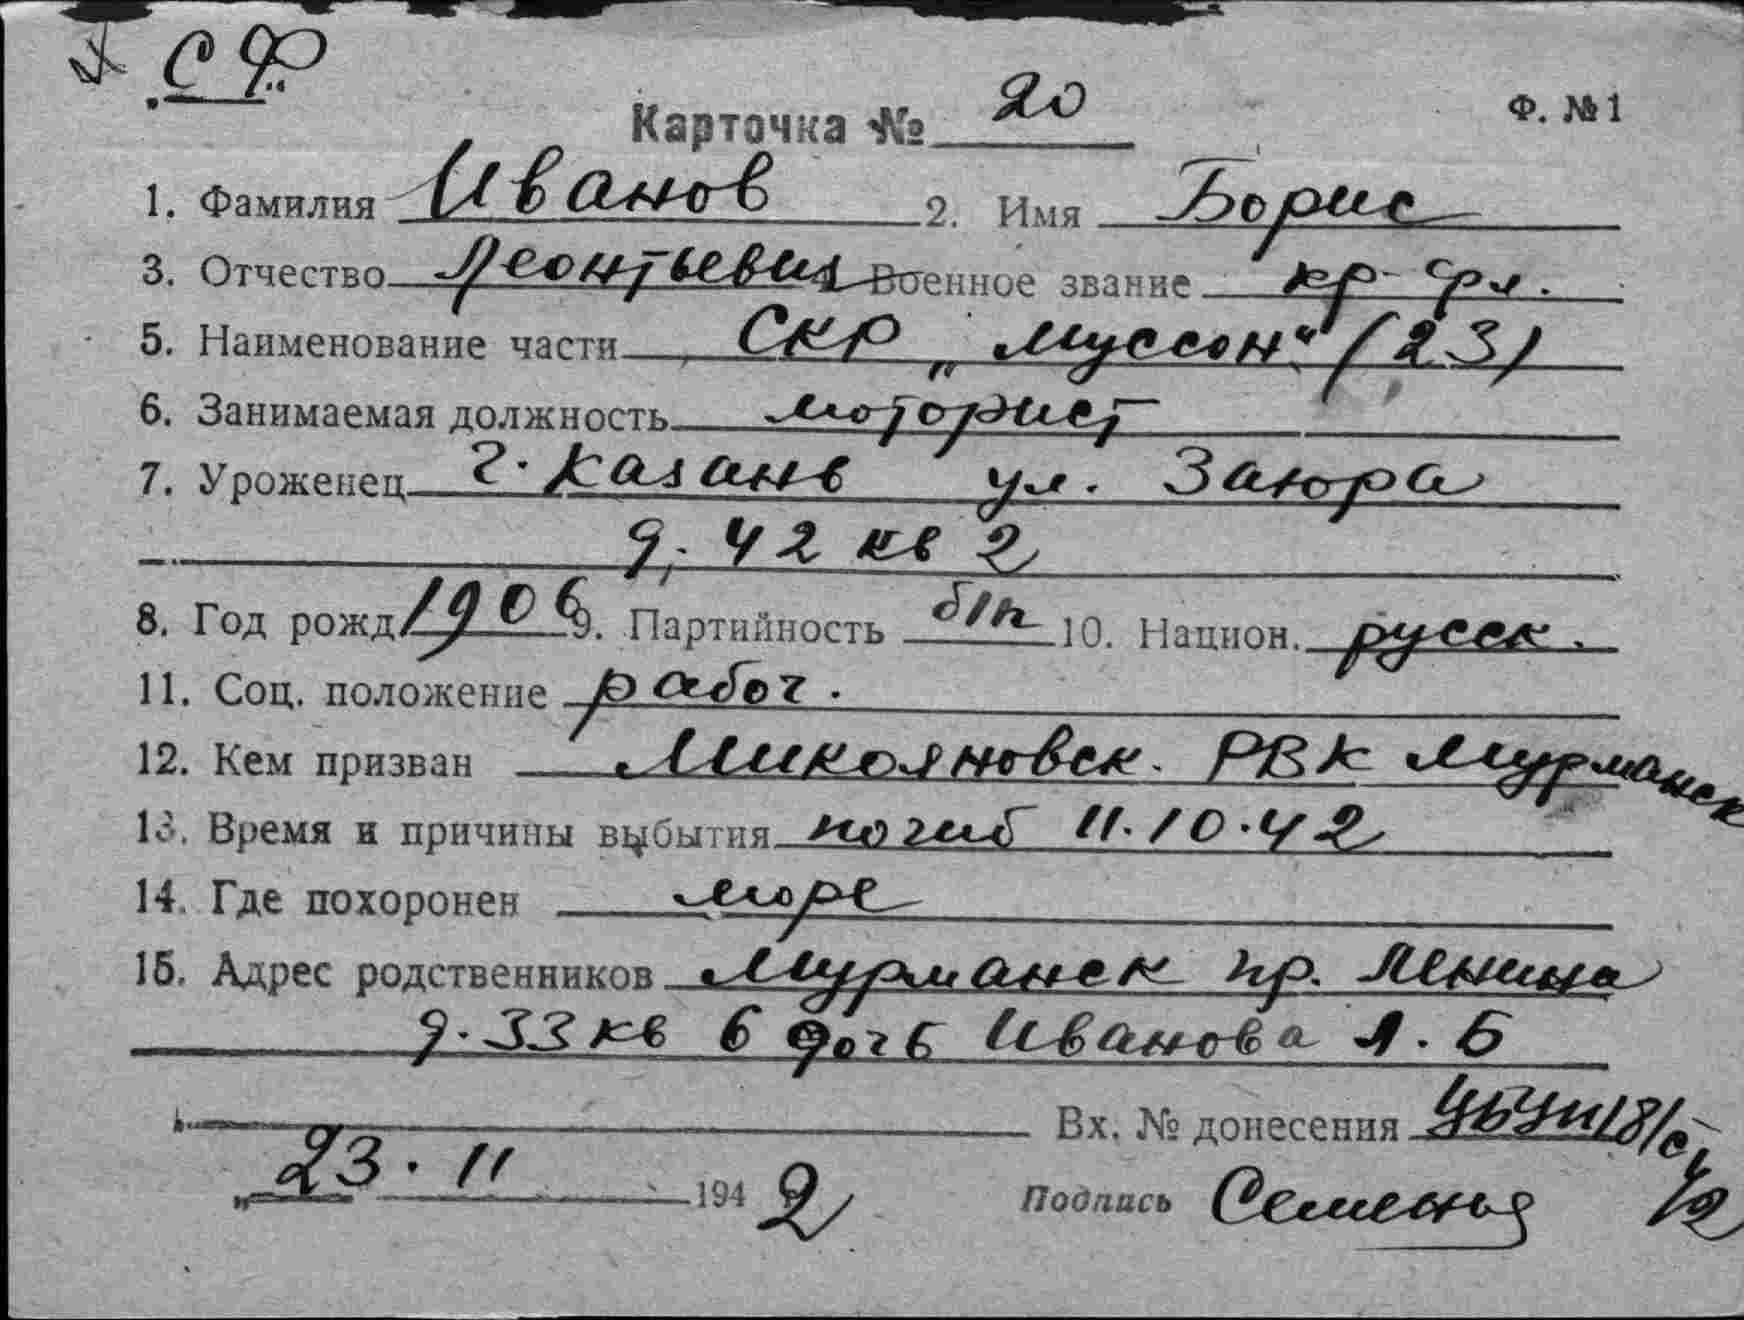 СФ
Карточка № 20 Ф. №1
1. Фамилия Иванов 2. Имя Борис
3. Отчество Леонтьевич Военное звание кр-фл.
5. Наименование части СКР „Муссон“ (23)
6. Занимаемая должность моторист
7. Уроженец г. Казань ул. Заюра
д. 42 кв 2
8. Год рожд 1906 9. Партийность б/п 10. Национ. русск.
11. Соц. положение рабоч.
12. Кем призван Микояновск. РВК Мурманск
13. Время и причины выбытия погиб 11.10.42
14. Где похоронен море
15. Адрес родственников Мурманск пр. Ленина
д. 33 кв 6 дочь Иванова Л. Б
Вх. № донесения
„23. 11 1942 Подпись